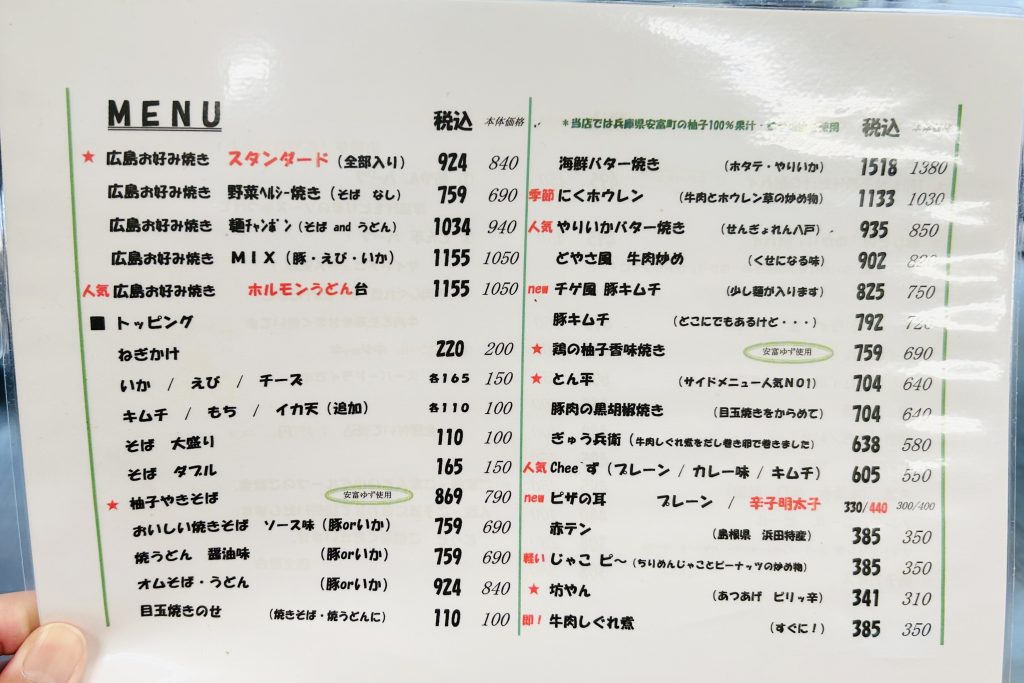 MENU
税込 本体価格
★ 広島お好み焼き スタンダード (全部入り) 924 840
広島お好み焼き 野菜ﾍﾙｼｰ焼き (そば なし) 759 690
広島お好み焼き 麺ﾁｬﾝﾎﾟﾝ (そば and うどん) 1034 940
広島お好み焼き MIX (豚・えび・いか) 1155 1050
人気 広島お好み焼き ホルモンうどん台 1155 1050
■ トッピング
ねぎかけ 220 200
いか / えび / チーズ 各165 150
キムチ / もち / イカ天 (追加) 各110 100
そば 大盛り 110 100
そば ダブル 165 150
★ 柚子やきそば 安富ゆず使用 869 790
おいしい焼きそば ソース味 (豚orいか) 759 690
焼うどん 醤油味 (豚orいか) 759 690
オムそば・うどん (豚orいか) 924 840
目玉焼きのせ (焼きそば・焼うどんに) 110 100
*当店では兵庫県安富町の柚子100%果汁・使用 税込
海鮮バター焼き (ホタテ・やりいか) 1518 1380
季節 にくホウレン (牛肉とホウレン草の炒め物) 1133 1030
人気 やりいかバター焼き (せんぎょれん八戸) 935 850
どやさ風 牛肉炒め (くせになる味) 902 820
new チゲ風 豚キムチ (少し麺が入ります) 825 750
豚キムチ (どこにでもあるけど・・・) 792 720
★ 鶏の柚子香味焼き 安富ゆず使用 759 690
★ とん平 (サイドメニュー人気NO1) 704 640
豚肉の黒胡椒焼き (目玉焼きをからめて) 704 640
ぎゅう兵衛 (牛肉しぐれ煮をだし巻き卵で巻きました) 638 580
人気 Cheeず (プレーン / カレー味 / キムチ) 605 550
new ピザの耳 プレーン / 辛子明太子 330/440 300/400
赤テン (島根県 浜田特産) 385 350
軽い じゃこ ピ〜 (ちりめんじゃことピーナッツの炒め物) 385 350
★ 坊やん (あつあげ ピリッ辛) 341 310
即! 牛肉しぐれ煮 (すぐに!) 385 350